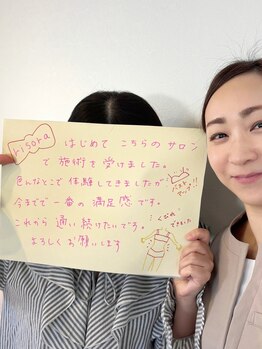 risora
はじめて こちらの サロン
で 施術を 受けました。
色んなとこで 体験してきましたが
今までで 一番の 満足感です。
これから 通い続けたいです。
よろしくお願いします
バスト
アップ!!
くびれ
できました